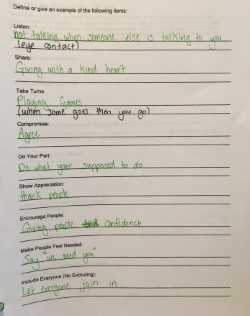 Define or give an example of the following items:
Listen:
not talking when someone else is talking to you
(eye contact)
Share:
Giving with a kind heart
Take Turns:
Playing Games
(when some goes then you go)
Compromise:
Agree
Do Your Part:
Do what your supposed to do
Show Appreciation:
thank people
Encourage People:
Giving people confidence
Make People Feel Needed:
Say "we need you"
Include Everyone (No Excluding):
Let everyone join in